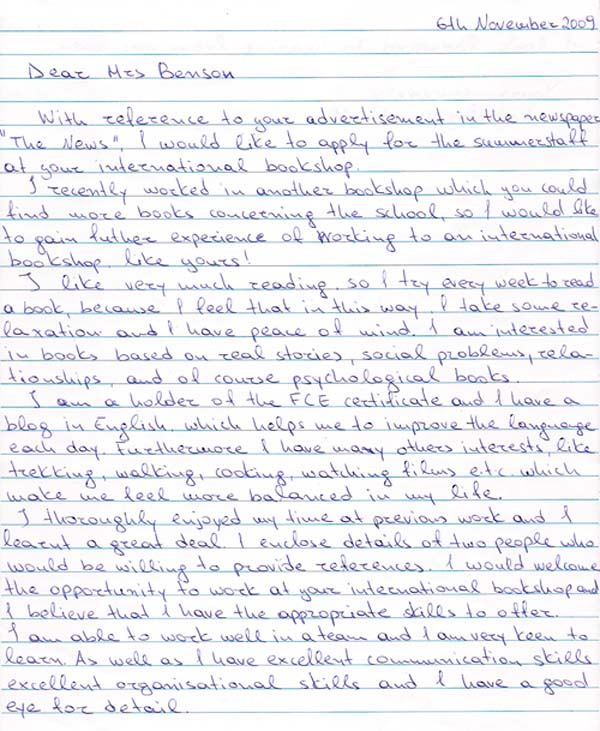 6th November 2009
Dear Mrs Benson
With reference to your advertisement in the newspaper
"The News", I would like to apply for the summerstaff
at your international bookshop.
I recently worked in another bookshop which you could
find more books concerning the school, so I would like
to gain futher experience of working to an international
bookshop like yours!
I like very much reading, so I try every week to read
a book, because I feel that in this way I take some re-
laxation and I have peace of mind. I am interested
in books based on real stories, social problems, rela-
tionships, and of course psychological books.
I am a holder of the FCE certificate and I have a
blog in English, which helps me to improve the language
each day. Furthermore I have many others interests, like
trekking, walking, cooking, watching films e.t.c. which
make me feel more balanced in my life.
I thoroughly enjoyed my time at previous work and I
learnt a great deal. I enclose details of two people who
would be willing to provide references. I would welcome
the opportunity to work at your international bookshop and
I believe that I have the appropriate skills to offer.
I am able to work well in a team and I am very keen to
learn. As well as I have excellent communication skills
excellent organisational skills and I have a good
eye for detail.